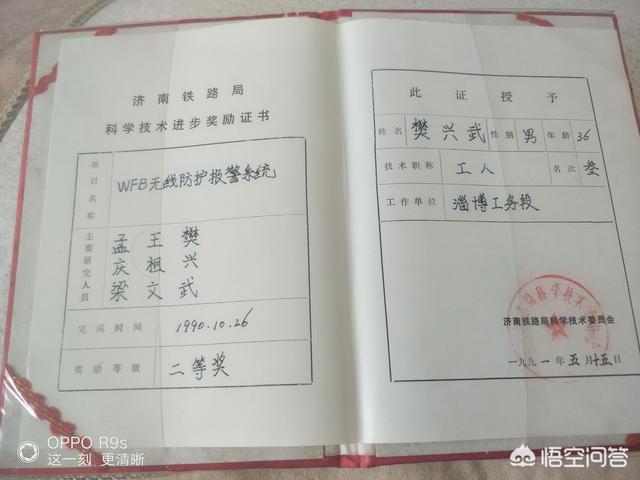 济南铁路局
科学技术进步奖励证书
项目名称 WFB无线防护报警系统
主要研究人员 孟庆梁 王祖文 樊兴武
完成时间 1990.10.26
奖励等级 二等奖
此证授予
姓名 樊兴武 性别 男 年龄 36
技术职称 工人 名次 叁
工作单位 淄博工务段
济南铁路局科学技术委员会
一九九一年五月十五日
OPPO R9s
这一刻 更清晰
悟空问答